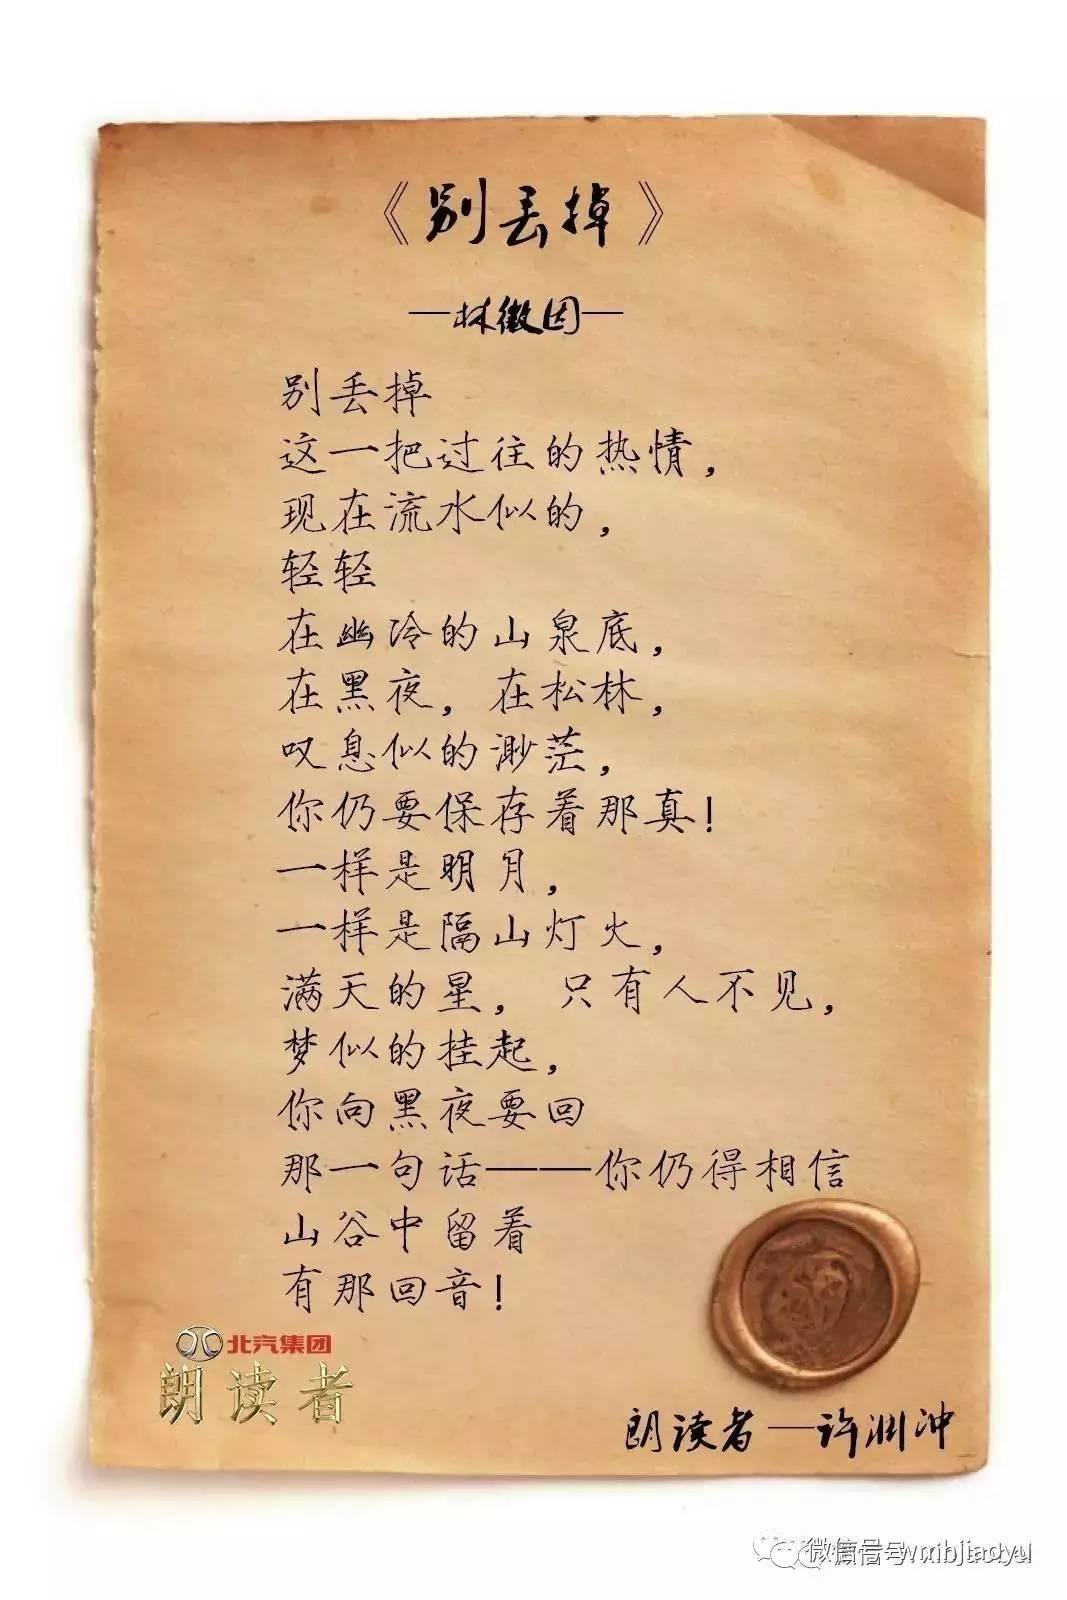 《别丢掉》
—林徽因—
别丢掉
这一把过往的热情，
现在流水似的，
轻轻
在幽冷的山泉底，
在黑夜，在松林，
叹息似的渺茫，
你仍要保存着那真！
一样是明月，
一样是隔山灯火，
满天的星， 只有人不见，
梦似的挂起，
你向黑夜要回
那一句话——你仍得相信
山谷中留着
有那回音！
北汽集团
朗读者
朗读者—许渊冲